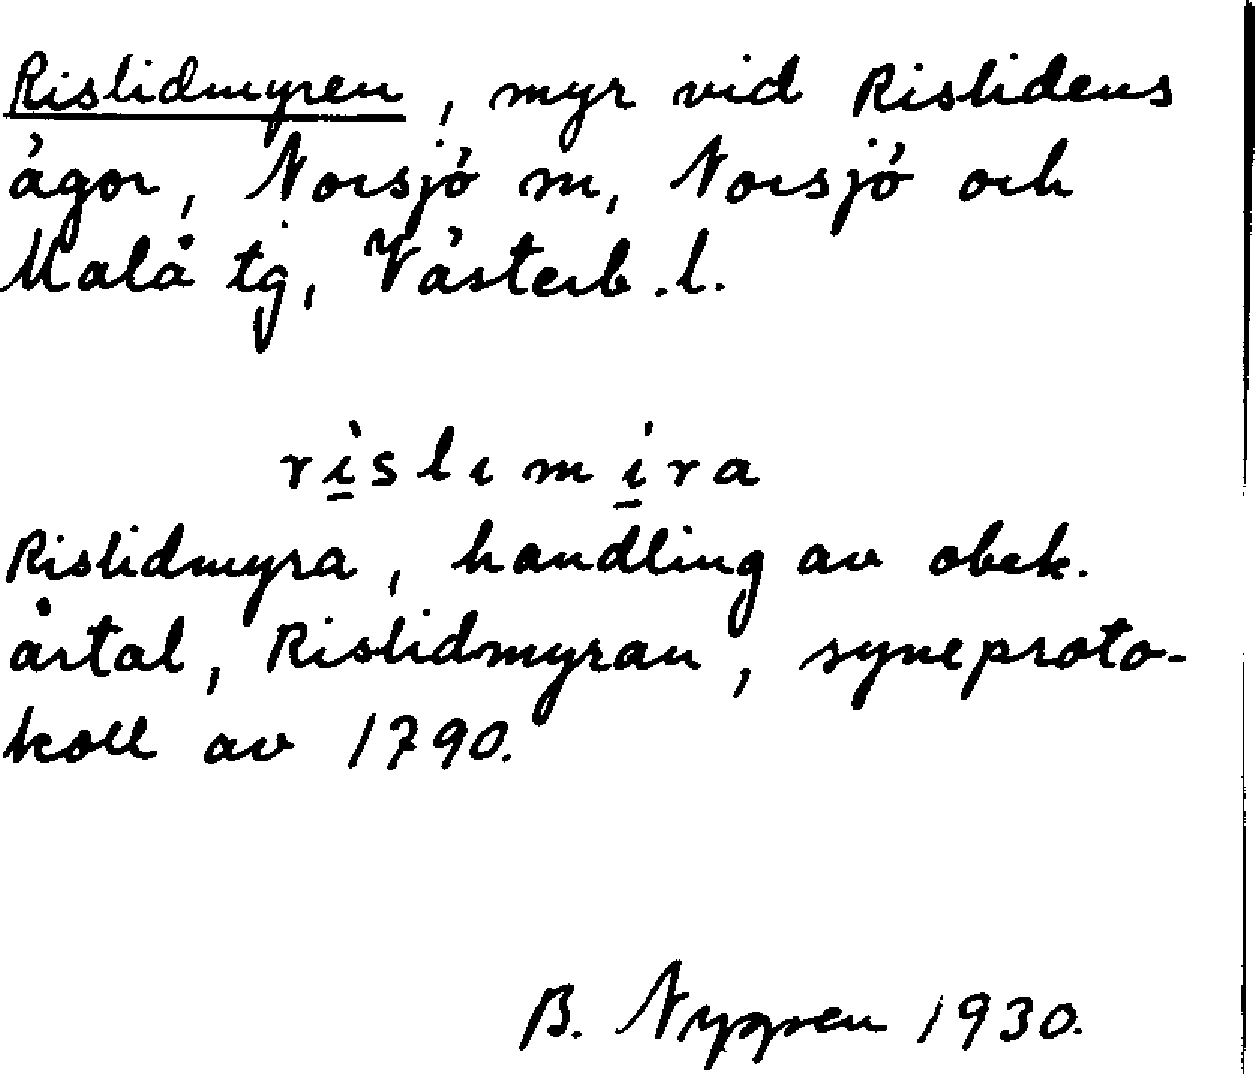 Rislidmyren, myr vid Rislidens
ägor, Norsjö sn, Norsjö och
Malå tg, Västerb. l.
rìslımíra
Rislidmyra, handling av obek.
årtal, Rislidmyran, syneproto-
koll av 1790.
B. Nygren 1930.